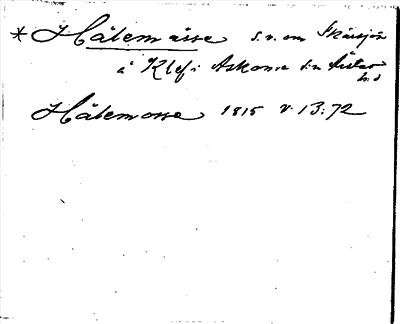 * Hålemåsse s.v. om Skärsjön
å Klef i Askome sn Årstad
hd
Hålemosse 1815 v. 13:72